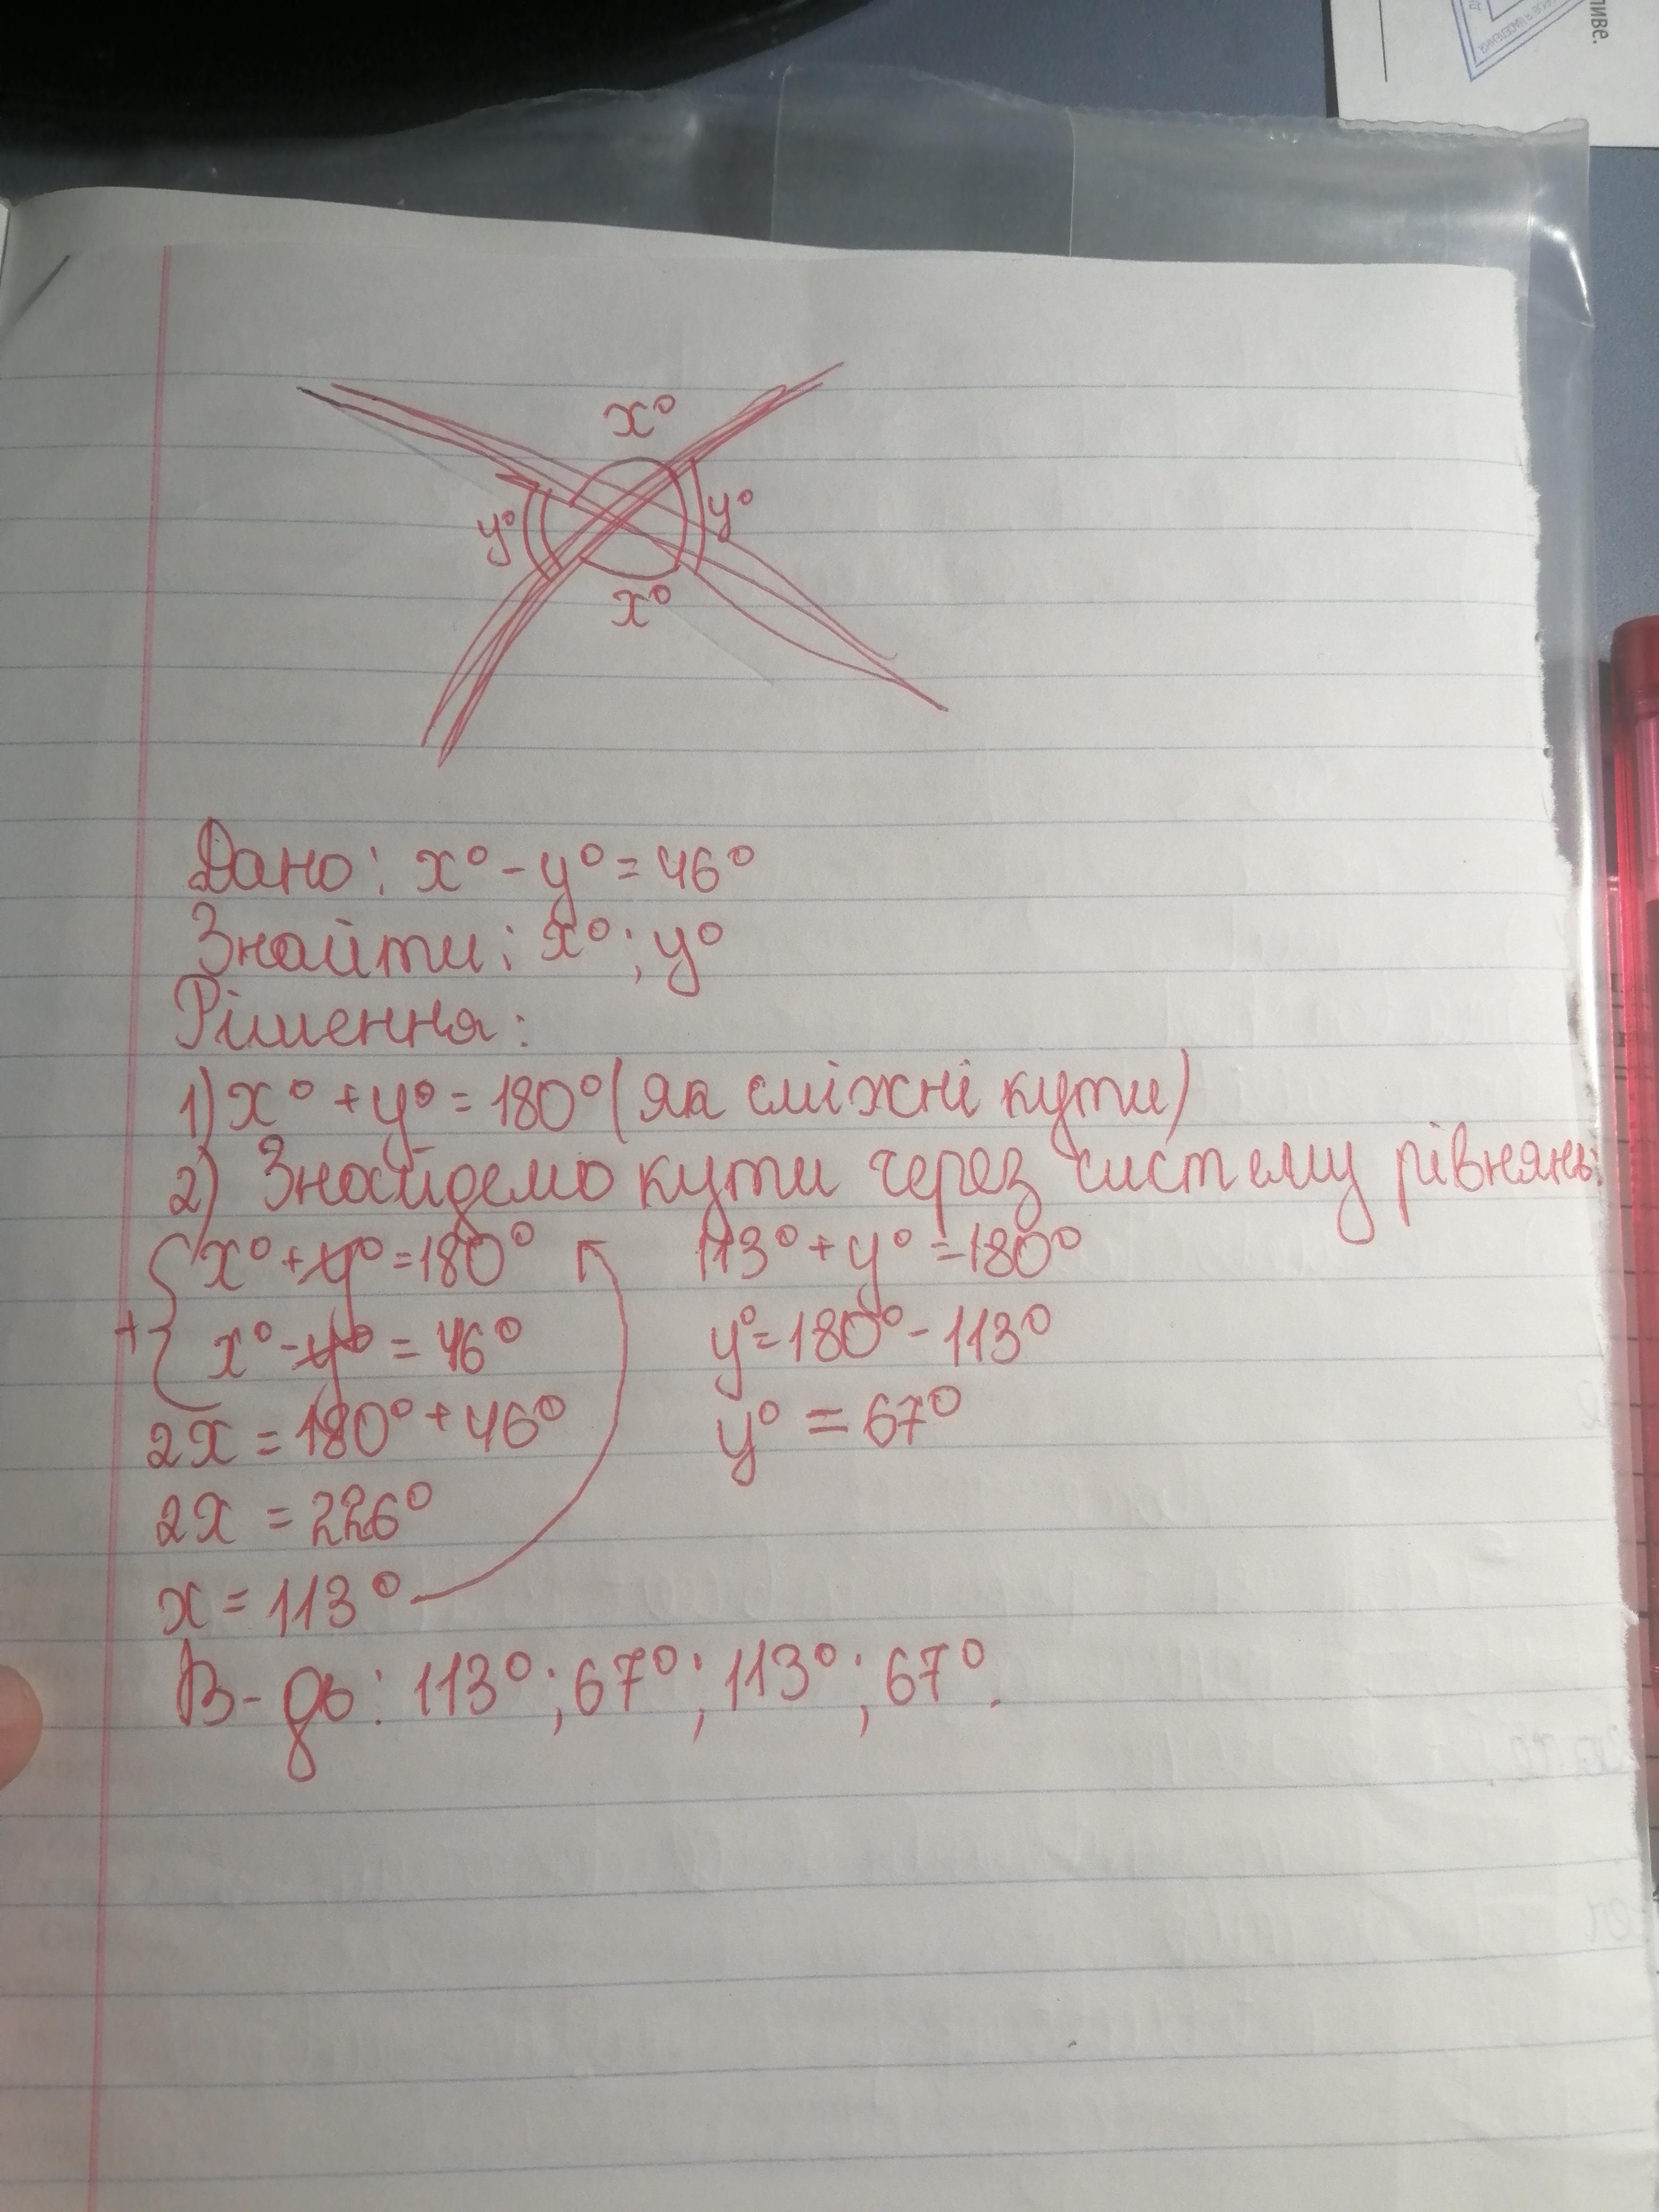 ливе.
x°
y°
y°
x°
Дано: x° - y° = 46°
Знайти: x°; y°
Рішення:
1) x° + y° = 180° (як сміжні кути)
2) Знайдемо кути через систему рівнянь:
x° + y° = 180°
+
x° - y° = 46°
2x = 180° + 46°
2x = 226°
x = 113°
113° + y° = 180°
y° = 180° - 113°
y° = 67°
В-дь: 113°; 67°; 113°; 67°.